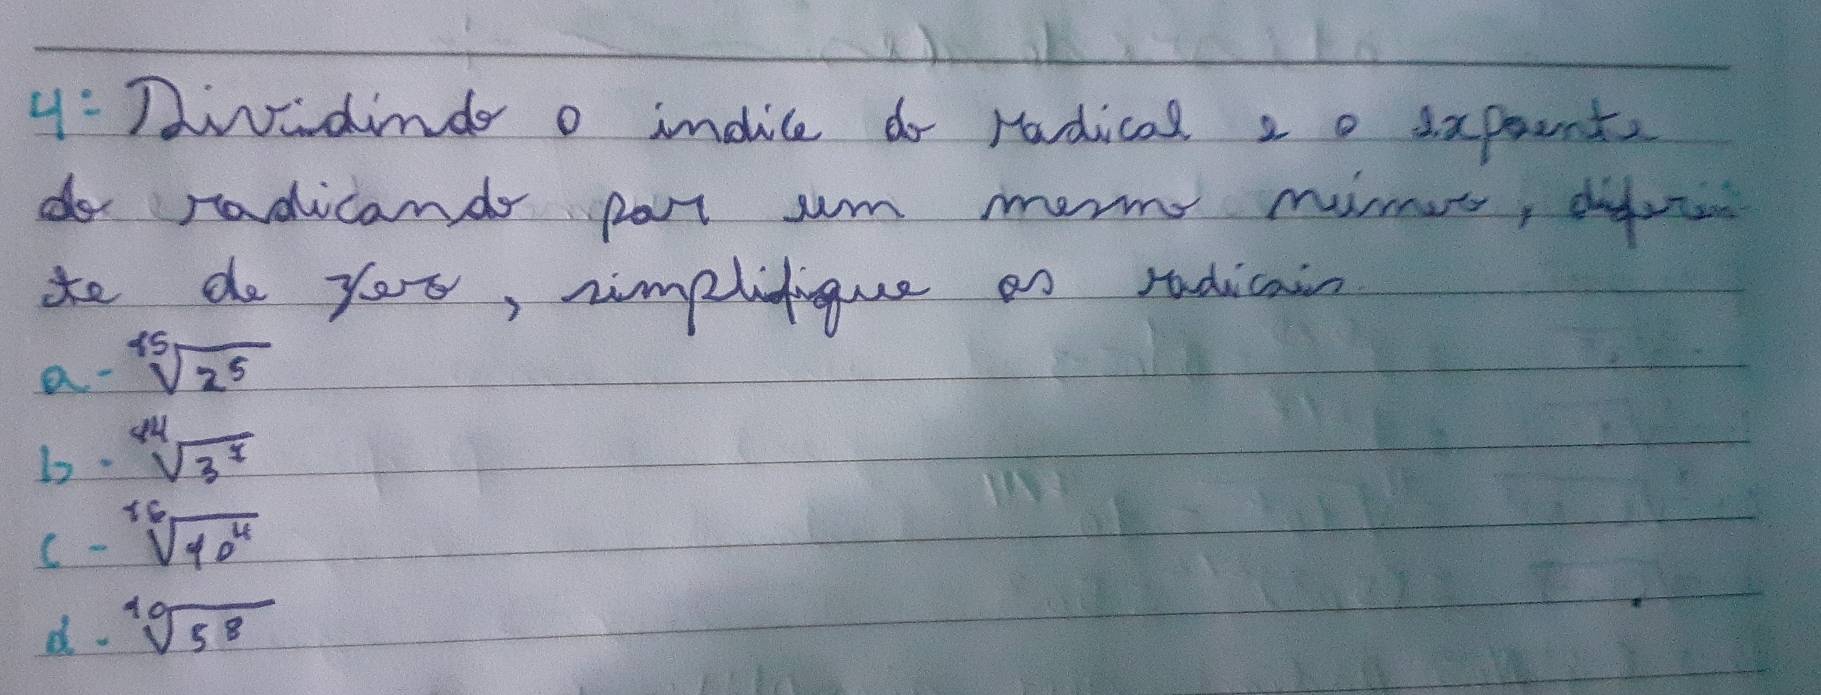 4= Dividindo o indice do radical e o expoente
do radicando por um mesmo número, diferen
te de zero, simplifique os radicais.
a- ¹⁵√2⁵
b- ¹⁴√3⁷
c- ¹⁶√10⁴
d- ¹⁰√5⁸